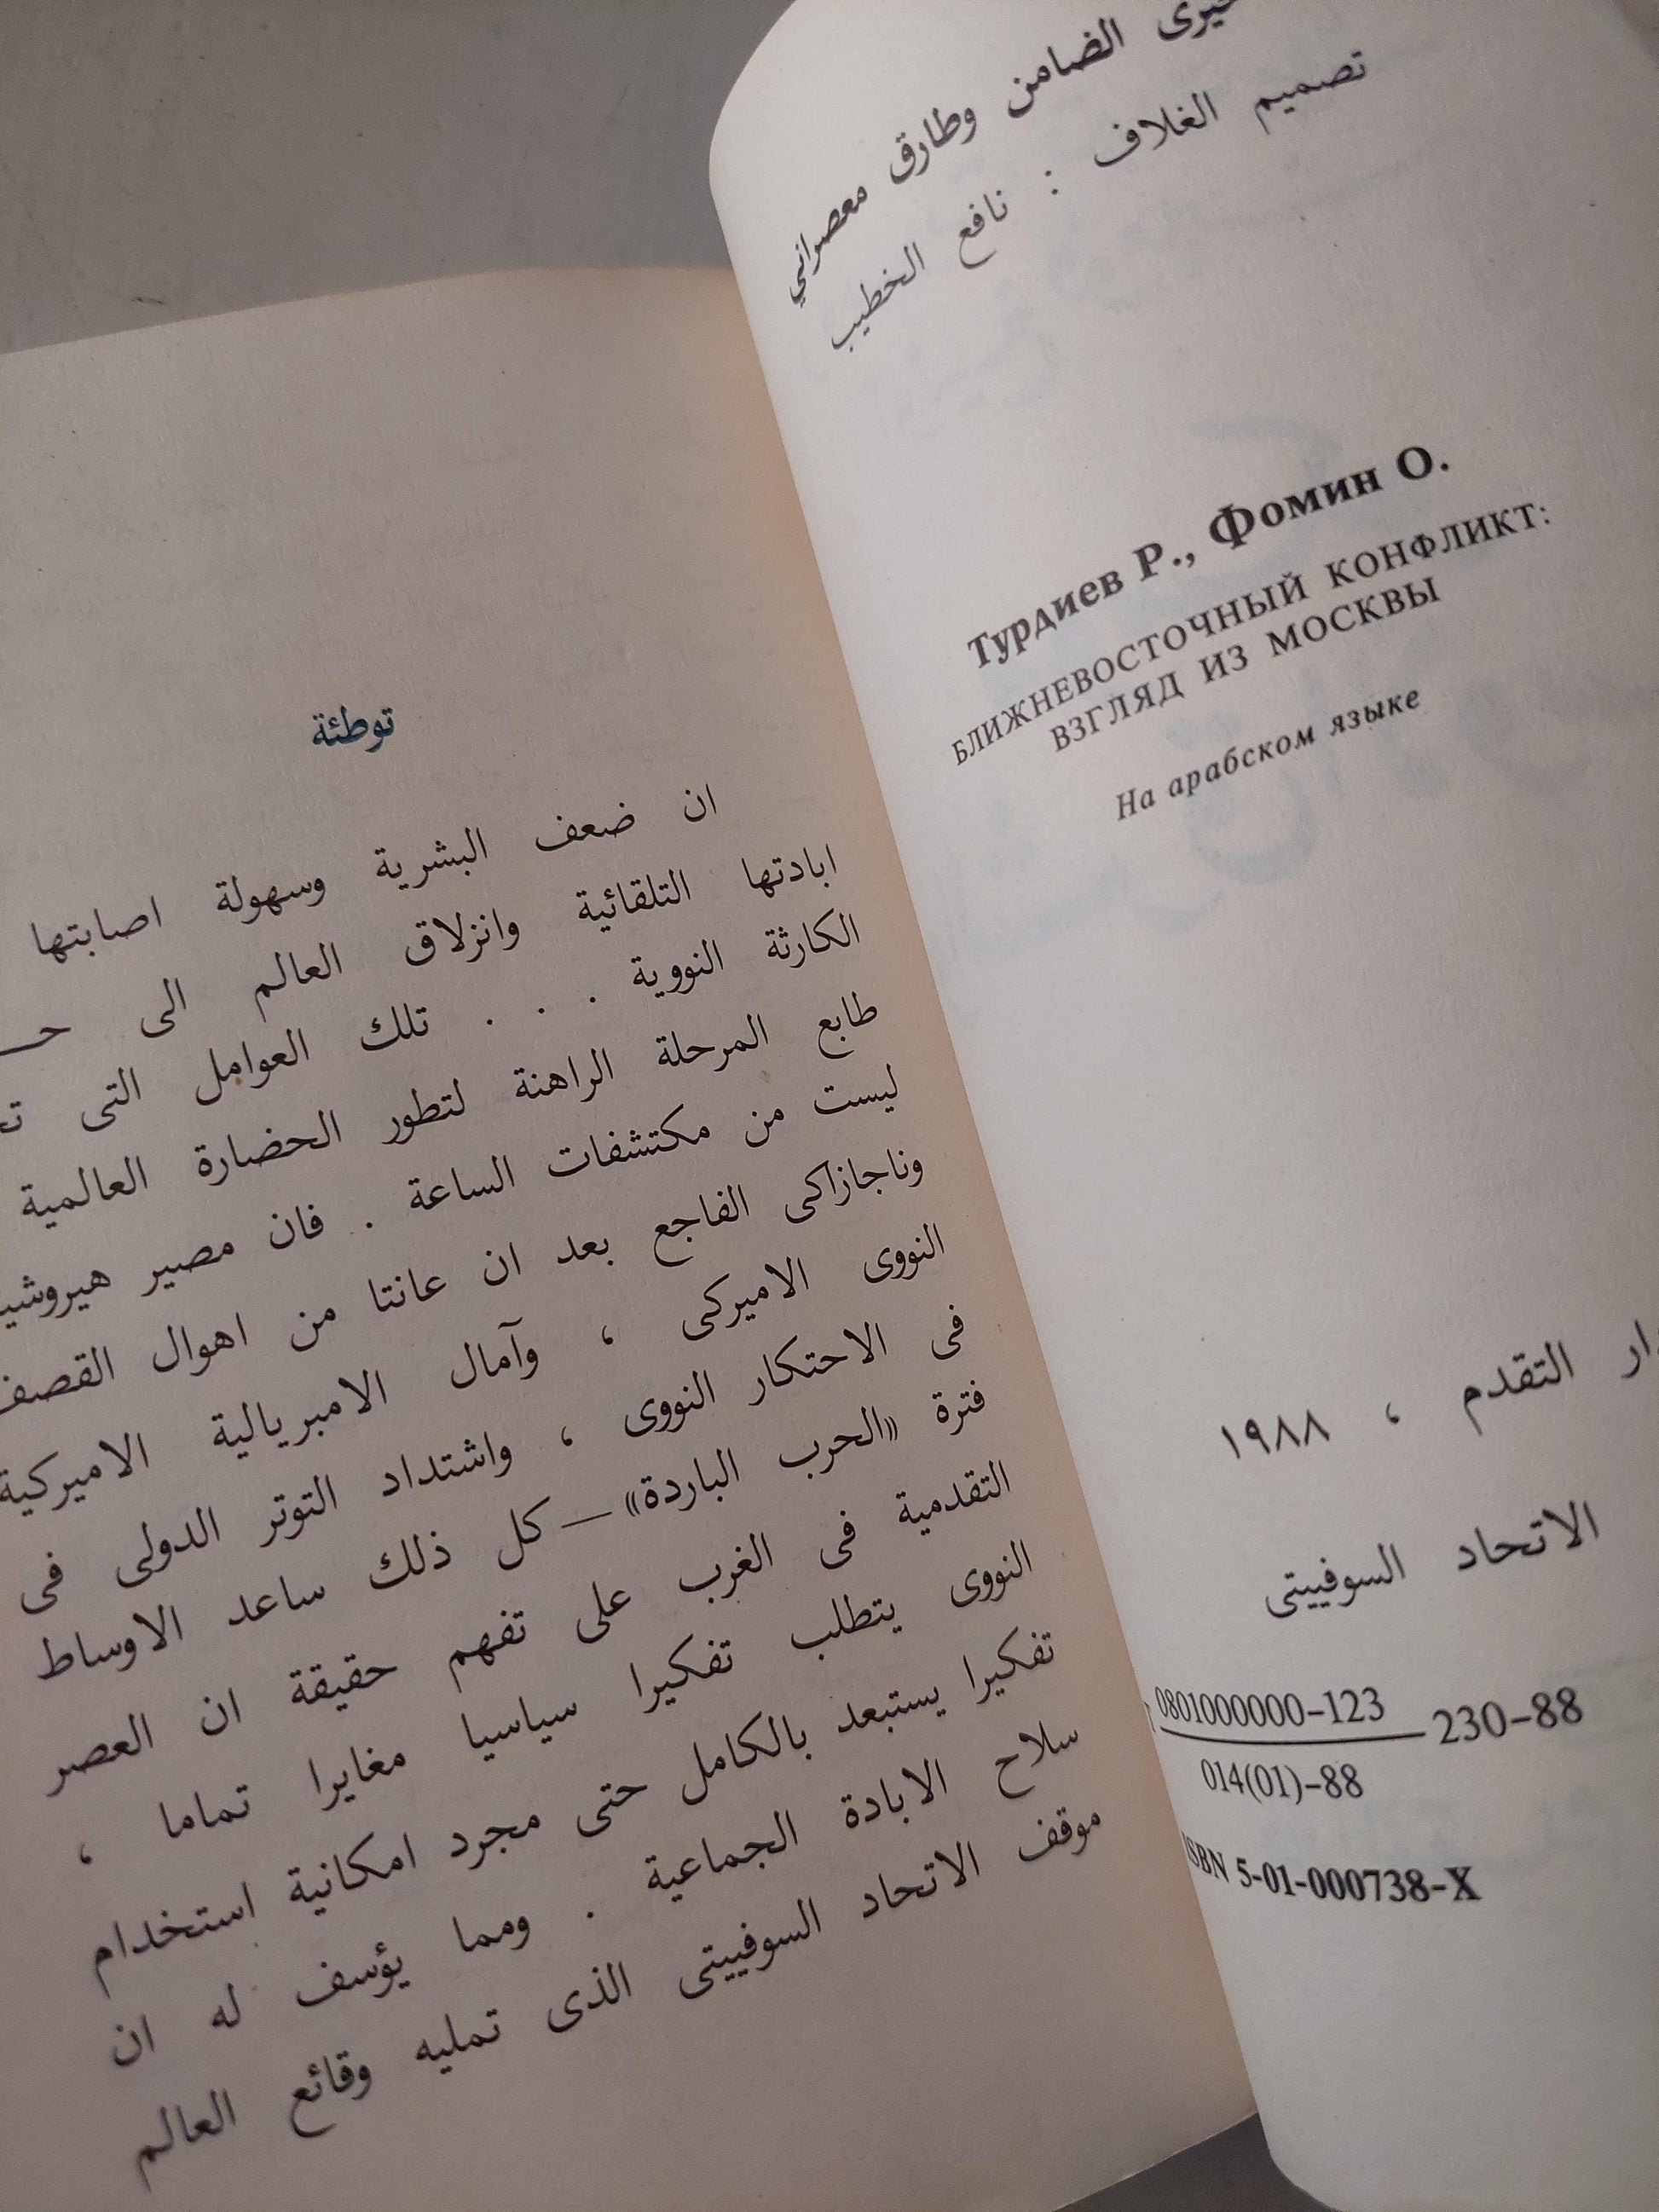 الضامن وطارق معصراني
تصميم الغلاف : نافع الخطيب
Турдиев Р., Фомин О.
БЛИЖНЕВОСТОЧНЫЙ КОНФЛИКТ:
ВЗГЛЯД ИЗ МОСКВЫ
На арабском языке
التقدم ، ١٩٨٨
الاتحاد السوفييتى
0801000000–123
230–88
014(01)–88
ISBN 5-01-000738-X
توطئة
ان ضعف البشرية وسهولة اصابتها
ابادتها التلقائية وانزلاق العالم الى
الكارثة النووية . . . تلك العوامل التى
طابع المرحلة الراهنة لتطور الحضارة العالمية
ليست من مكتشفات الساعة . فان مصير
وناجازاكى الفاجع بعد ان عانتا من اهوال القصف
النووى الاميركى ، وآمال الامبريالية الاميركية
فى الاحتكار النووى ، واشتداد التوتر الدولى فى
فترة «الحرب الباردة»—كل ذلك ساعد الاوساط
التقدمية فى الغرب على تفهم حقيقة ان العصر
النووى يتطلب تفكيرا سياسيا مغايرا تماما ،
تفكيرا يستبعد بالكامل حتى مجرد امكانية استخدام
سلاح الابادة الجماعية . ومما يؤسف له ان
موقف الاتحاد السوفييتى الذى تمليه وقائع العالم